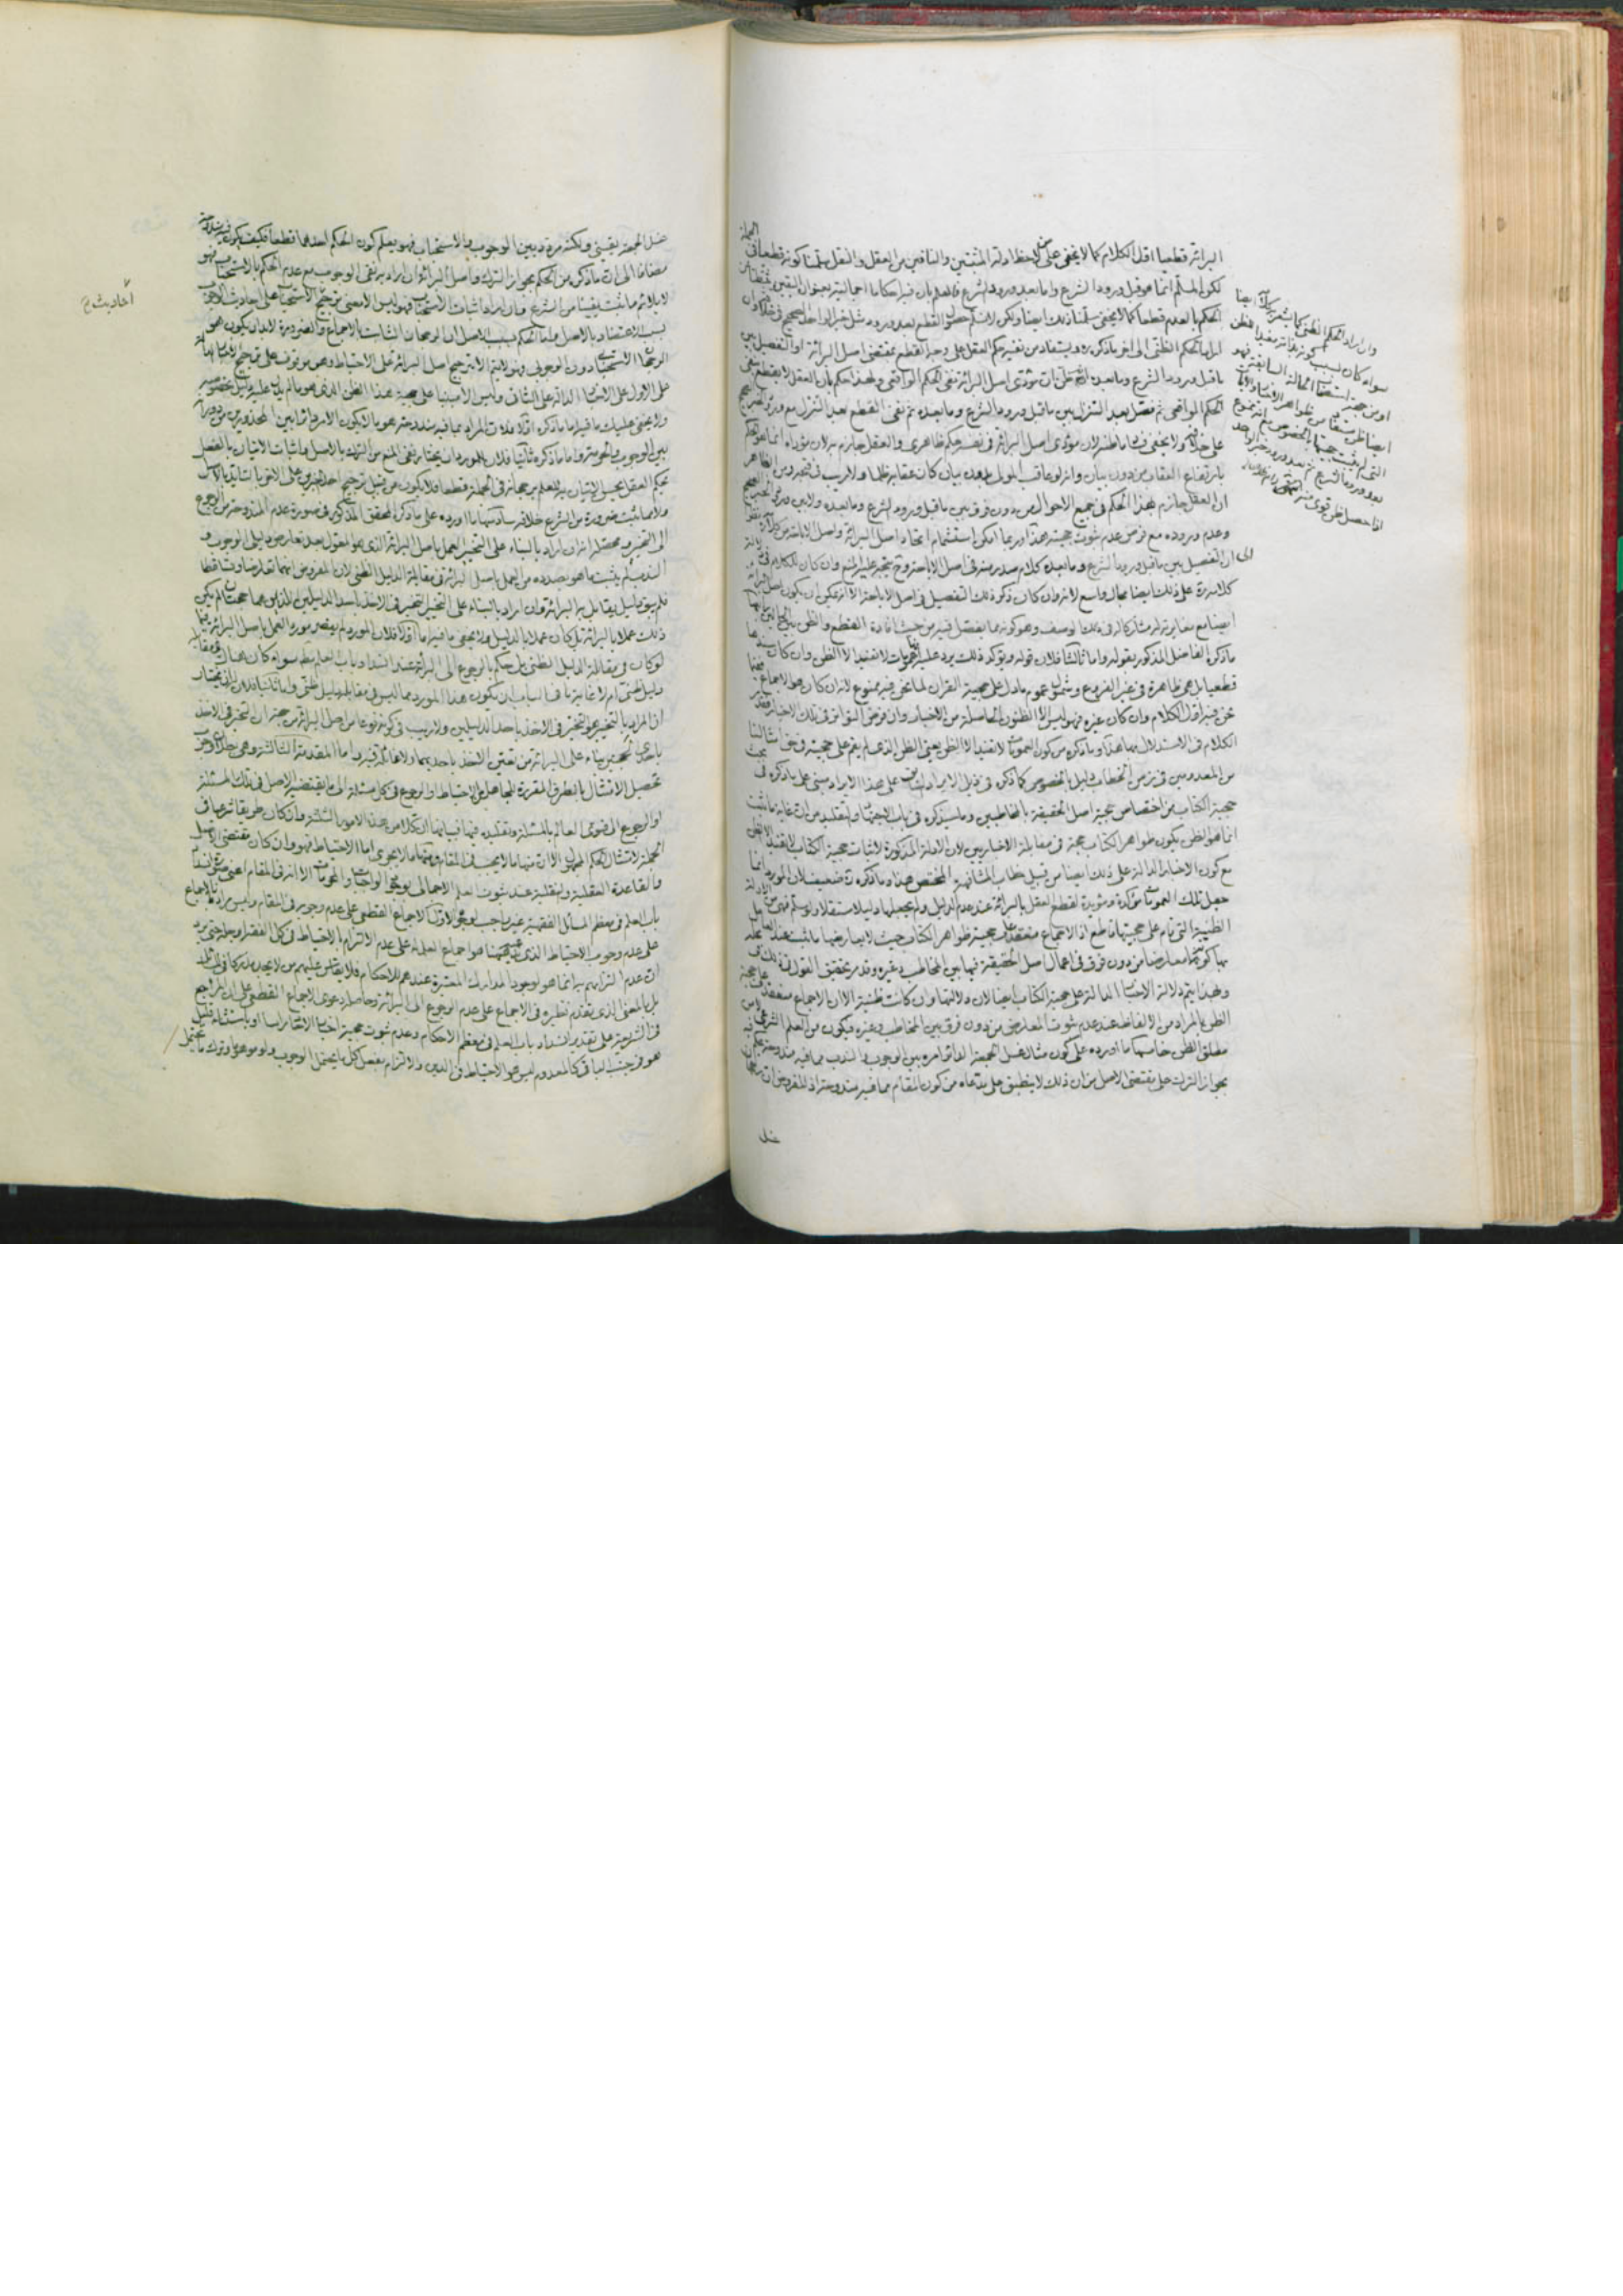 البرائة قطعيا اول الكلام كما لا يخفى على من لاحظ ادلة المثبتين والنافين من العقل والنقل سلمنا كونه قطعيا في الجملة
لكن المسلم انما هو قبل ورود الشرع واما بعد ورود الشرع فالعلم بان فيه احكاما اجمالية بعنوان اليقين يثبطنا عن
الحكم بالعدم قطعا كما لا يخفى سلمنا ذلك ايضا ولكن لا نسلم حصول القطع بعد ورود مثل خبر الواحد الصحيح في خلافه وان
اراد الحكم الظني الى اخر ما ذكره ويستفاد من نفيه حكم العقل على وجه القطع بمقتضى اصل البرائة او التفصيل بين
ما قبل ورود الشرع وما بعده ان مؤدى اصل البرائة نفي الحكم الواقعي ولهذا حكم بان العقل لا يقطع بنفي
الحكم الواقعي ثم فصل بعد التنزل بين ما قبل ورود الشرع وما بعده ثم نفى القطع بعد التنزل مع ورود الخبر الصحيح
على خلافه ولا يخفى فساد ما ظنه لان مؤدى اصل البرائة في نفسه حكم ظاهري والعقل جازم به لان مؤداه انما هو الحكم
بارتفاع العقاب من دون بيان وانه لو عاقب المولى بدون بيان كان عقابه ظلما ولا ريب في
ان العقل جازم بهذا الحكم في جميع الاحوال من دون فرق بين ما قبل ورود الشرع وما بعده ولا بين ورود الخبر الصحيح
وعدم وروده مع فرض عدم ثبوت حجيته هذا وربما امكن استشمام اتحاد اصل البرائة واصل الاباحة من كلامه
الى ان التفصيل بين ما قبل ورود الشرع وما بعده كلام صدر منه في اصل الاباحة وح يتجه عليه المنع وان كان للكلام في
كلامه على ذلك ايضا مجال واسع لانه وان كان ذكر ذلك التفصيل في اصل الاباحة الا انه يمكن ان يكون اصل البرائة
ايضا مع مغايرته له مشاركا له في ذلك الوصف وهو كونه مما يفصل فيه من حيث افادة القطع والظن بين
ما ذكره الفاضل المذكور بقوله واما ثالثا فلان قوله ويؤكد ذلك يرد عليه ان العمومات لا تفيد الا الظن وان كان سندها
قطعيا بل هي ظاهرة في غير الفروع وشمول عموم ما دل على حجية القران لما نحن فيه ممنوع لانه ان كان هو الاجماع ففيما
نحن فيه اول الكلام وان كان غيره فهو ليس الا الظنون الحاصلة من الاخبار وان فرض التواتر في تلك الاخبار فقد
الكلام في الاستدلال بها هذا وما ذكره من كون العمومات لا تفيد الا الظن يعني الظن الذي لم يقم على حجيته في حق امثالنا
من المعدومين في زمن الخطاب دليل بالخصوص كما ذكره في ذيل الايراد الثاني على هذا الايراد مبني على ما ذكره في بحث
حجية الكتاب من اختصاص حجية اصل الحقيقة بالمخاطبين وما سيذكره في باب الاجتهاد والتقليد من ان غاية ما ثبت
انما هو الظن بكون ظواهر الكتاب حجة في مقابلة الاخباريين لان الادلة المذكورة لاثبات حجية الكتاب لا تفيد الا الظن
مع كون الاخبار الدالة على ذلك ايضا من قبيل خطاب المشافهة المختص هذا وما ذكره ره ضعيف لان المورد انما
جعل تلك العمومات مؤكدة ومؤيدة لقطع العقل بالبرائة عند عدم الدليل ولم يجعلها دليلا مستقلا ولو سلم فهي من الادلة
الظنية التي قام على حجيتها قاطع اذ الاجماع منعقد على حجية ظواهر الكتاب حيث لا يعارضها ما ثبت عند العامل
بها كونه معارضا من دون فرق في اعمال اصل الحقيقة فيها بين المخاطب وغيره وقد مر تحقيق القول في ذلك في محله
وبهذا يتم دلالة الاخبار الدالة على حجية الكتاب ايضا لان دلالتها وان كانت ظنية الا ان الاجماع منعقد على حجية
الظن بالمراد من الالفاظ عند عدم ثبوت المعارض من دون فرق بين المخاطب وغيره فيكون من العلم الشرعي لا من
مطلق الظن خامسها ما اورده على كون مثال غسل الجمعة الدائر امره بين الوجوب والندب مما فيه مندوحة يحكم فيه
بجواز الترك على مقتضى الاصل من ان ذلك لا ينطبق على مدعاه من كون المقام مما فيه مندوحة اذ المفروض ان
غسل
وان اراد الحكم الظني كما يشعر به كلامه ايضا
سواء كان بسبب كونه بذاته مفيدا للظن
او من جهة استصحاب الحالة السابقة فهو
ايضا ظن مستفاد من ظواهر الايات والاخبار
التي لم يثبت حجيتها بالخصوص مع انه ممنوع
بعد ورود الشرع ثم بعد ورود خبر الواحد
اذا حصل ظن اقوى منه
غسل الجمعة يقيني ولكنه مردد بين الوجوب والاستحباب فهو يعلم كون الحكم احدهما قطعا فكيف يكون فيه مندوحة
مضافا الى ان ما ذكره من الحكم بجواز الترك واصل البرائة ان اراد به نفي الوجوب مع عدم الحكم بالاستحباب فهو
لا يلائم ما ثبت يقينا من الشرع وان اراد اثبات الاستحباب فهو ليس الا معنى ترجيح الاستحباب على احاديث الوجوب
بسبب الاعتضاد بالاصل واما الحكم بسبب الاصل ان الرجحان الثابت بالاجماع والضرورة لا بد ان يكون هو
الرجحان الاستحبابي دون الوجوبي فهو لا يتم الا بترجيح اصل البرائة على الاحتياط وهو موقوف على ترجيح الاخبار الدالة
على الاول على الاخبار الدالة على الثاني وليس الا مبنيا على حجية هذا الظن الذي هو مما لم يدل عليه دليل بخصوصه
ولا يخفى عليك ما فيه اما ما ذكره اولا فلان المراد بما فيه مندوحة هو ما لا يكون الامر دائرا بين المحذورين من دوران
بين الوجوب والحرمة واما ما ذكره ثانيا فلان للمورد ان يختار نفي المنع من الترك بالاصل واثبات الاتيان بالفصل
بحكم العقل بحسن الاتيان به للعلم برجحانه في الجملة قطعا فلا يكون من قبيل ترجيح احد الخبرين على الاخر بالتأييد بالاصل
ولا مما يثبت ضرورة من الشرع خلافه سادسها ما اورده على ما ذكره المحقق المذكور في صورة عدم المندوحة من الرجوع
الى التخيير ومحصله انه ان اراد بالبناء على التخيير العمل باصل البرائة الذي هو المعول بعد تعارض دليلي الوجوب و
الندب لم يثبت ما هو بصدده من العمل باصل البرائة في مقابلة الدليل الظني لان المفروض انهما تعارضا وتساقطا
فلم يبق دليل يقابل به البرائة وان اراد بالبناء على التخيير التخيير في الاخذ باحد الدليلين اللذين هما حجتان لم يكن
ذلك عملا بالبرائة بل كان عملا بالدليل ولا يخفى ما فيه اما اولا فلان المورد لم يقصر مورد العمل باصل البرائة فيما
لو كان في مقابلة الدليل الظني بل حكم بالرجوع الى البرائة عند انسداد باب العلم مطلقا سواء كان هناك في مقابله
دليل ظني ام لا غاية ما في الباب ان يكون هذا المورد مما ليس في مقابله دليل ظني واما ثانيا فلانه ان يختار
ان المراد بالتخيير هو التخيير في الاخذ باحد الدليلين ولا ريب في كونه نوعا من اصل البرائة من جهة ان التخيير في الاخذ
باحدى الحجتين بناء على البرائة من تعيين الاخذ باحديهما ولا غائلة فيه واما المقدمة الثالثة وهي بطلان وجوب
تحصيل الامتثال بالطرق المقررة للجاهل من الاحتياط او الرجوع في كل مسئلة الى ما يقتضيه الاصل في تلك المسئلة
او الرجوع الى فتوى العالم بالمسئلة وتقليده فيها فبيانها ان كلا من هذه الامور الثلثة وان كان طريقا شرعيا في
الجملة لامتثال الحكم المجهول الا ان منها ما لا يجب في المقام ومنها ما لا يجري اما الاحتياط فهو وان كان مقتضى الاصل
والقاعدة العقلية والنقلية عند ثبوت العلم الاجمالي بوجود الواجبات والمحرمات الا انه في المقام اعني صورة انسداد
باب العلم في معظم المسائل الفقهية غير واجب لوجوه الاول الاجماع القطعي على عدم وجوبه في المقام وليس المراد بالاجماع
على عدم وجوب الاحتياط الذي هنا هو اجماع العلماء على عدم الالتزام بالاحتياط في كل الفقه او جله حتى يرد
ان عدم التزامهم به انما هو لوجود المدارك المعتبرة عندهم للاحكام فلا يقاس عليهم من لا يجد مدركا في المسئلة
بل بالمعنى الذي تقدم نظيره في الاجماع على عدم الرجوع الى البرائة وحاصله دعوى الاجماع القطعي على ان المرجع
في الشريعة على تقدير انسداد باب العلم في معظم الاحكام وعدم ثبوت حجية اخبار الاحاد راسا او باستثناء قليل
هو في جنب الباقي كالمعدوم ليس هو الاحتياط في الدين والالتزام بفعل كل ما يحتمل الوجوب ولو موهوما وترك ما يحتمل
أحاديث